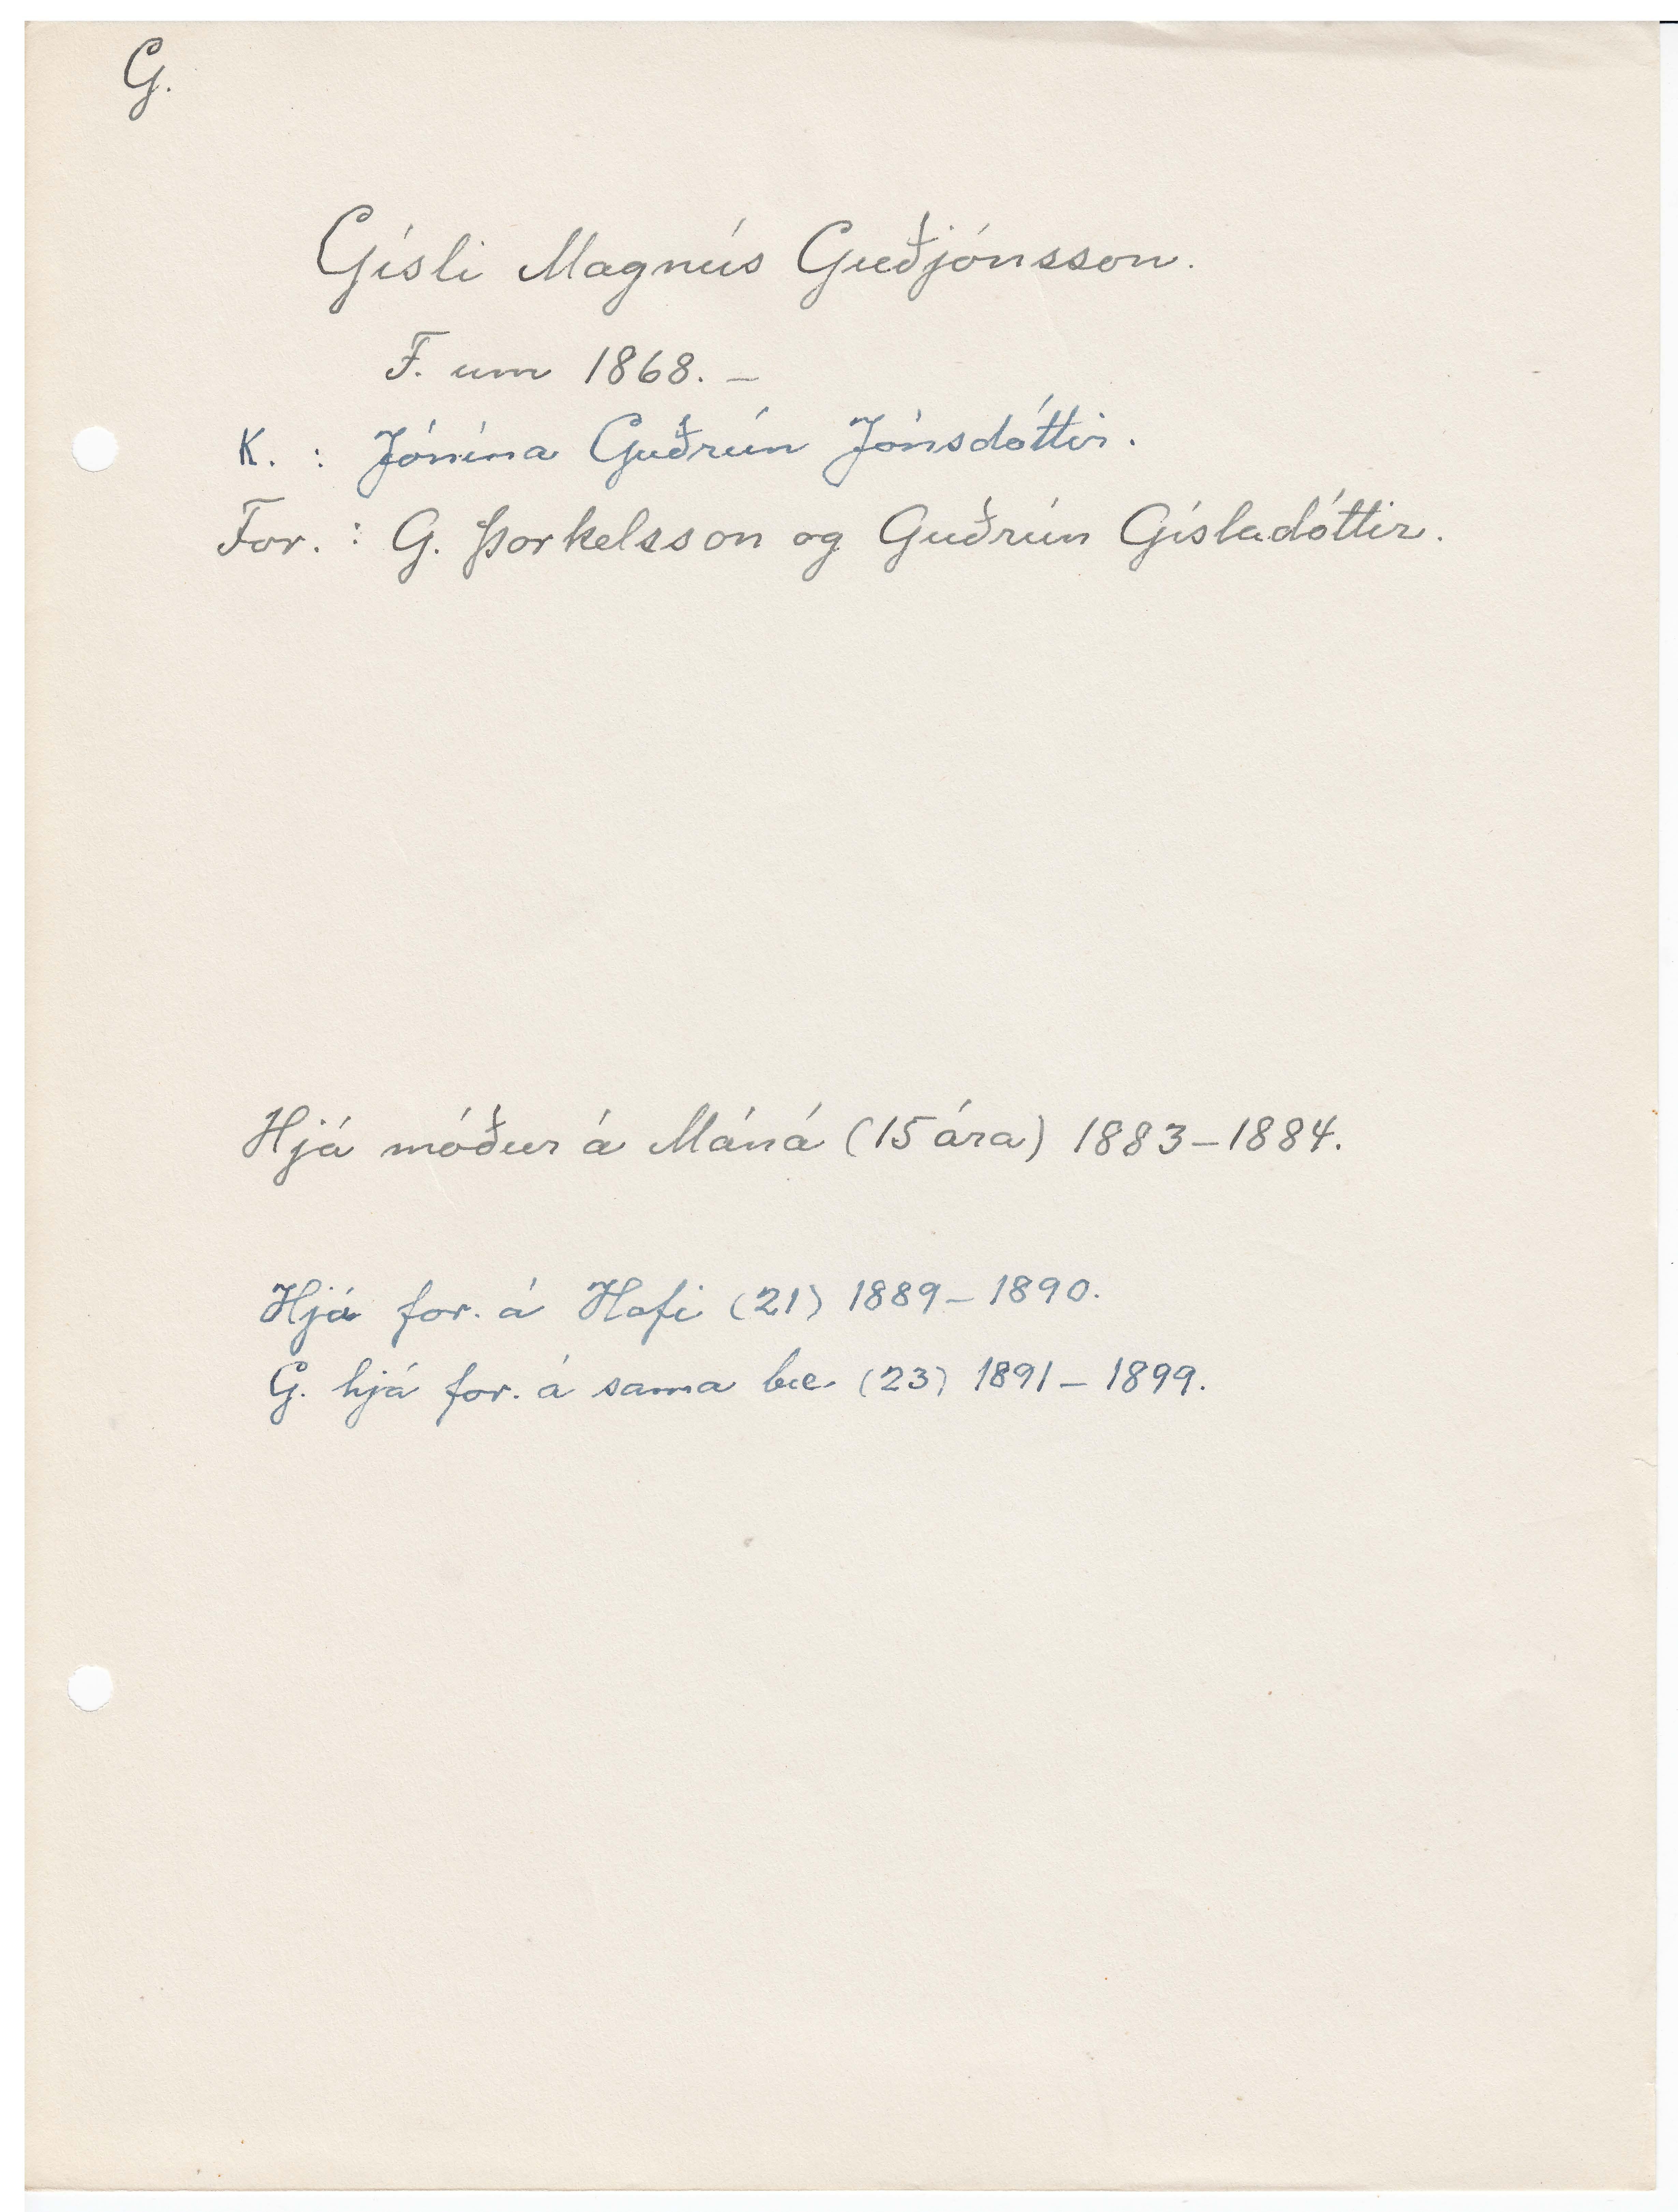 G.
Gísli Magnús Guðjónsson.
F. um 1868. –
K. : Jónína Guðrún Jónsdóttir.
For. : G. Þorkelsson og Guðrún Gísladóttir.
Hjá móður á Máná (15 ára) 1883–1884.
Hjá for. á Hafi (21) 1889–1890.
G. hjá for. á sama bæ (23) 1891–1899.